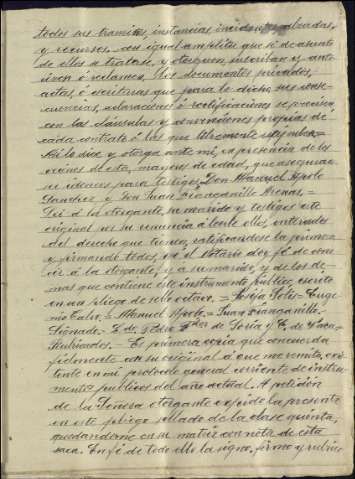 todos sus tramites, instancias, incidentes, alzadas,
y recursos, en igual amplitud que si de asunto
de ellos se tratase, y otorguen, suscriban y
ó reclamen los documentos privados,
actas ó escrituras que para lo dicho, sus
aclaraciones ó rectificaciones se precisen,
con las cláusulas y convenciones propias de
cada contrato ó las que libremente
Así lo dice y otorga ante mi, en presencia de los
vecinos de esta, mayores de edad, que aseguran
ser idoneos para testigos, Don Manuel Apolo
Sanchez y Don Juan Arenas.=
Leí á la otorgante, su marido y testigos este
original por su renuncia á leerle ellos, enterados
del derecho que tienen, ratificandose la primera
y firmando todos, yo el Notario doy fé de
á la otorgante, y a su marido, y de lo de
mas que contiene este instrumento público, escrito
en un pliego de sello octavo. = Luisa Solis= Euge
nio Calvo = Manuel Apolo = Juan
Signado = L.do Pedro de Soria y C. de Vaca=
Rubricados. = Es primera copia que concuerda
fielmente con su original á que me remito,
tente en mi protocolo general corriente de instru
mentos publicos del año actual. A peticion
de la Señora otorgante expido la presente
en este pliego sellado de la clase quinta,
quedandome en su matriz con nota de esta
saca. En fé de todo ello la signo, firmo y rubrico